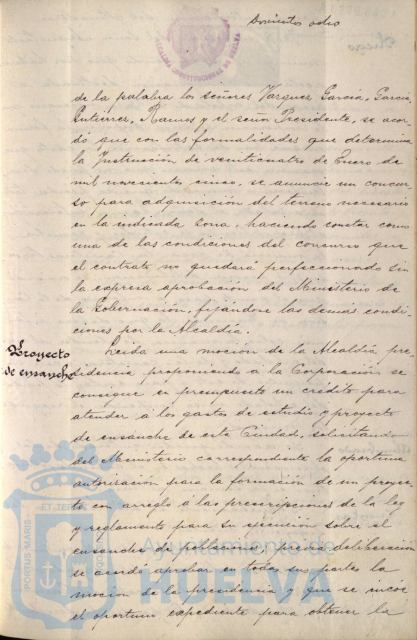 Doscientos ocho
ALCALDIA CONSTITUCIONAL DE HUELVA
de la palabra los señores Vazquez García, García
Gutierrez, Ramos y el señor Presidente, se acor-
dó que con las formalidades que determina
la Instrucción de veinticuatro de Enero de
mil novecientos cinco, se anuncie un concur
so para adquisición del terreno necesario
en la indicada zona, haciendo constar como
una de las condiciones del concurso que
el contrato no quedará perfeccionado sin
la expresa aprobación del Ministerio de
la Gobernación, fijándose las demás condi-
ciones por la Alcaldía.
Proyecto
de ensanche
Leida una moción de la Alcaldía pre-
sidencia proponiendo á la Corporación se
consigne en presupuesto un crédito para
atender á los gastos de estudio y proyecto
de ensanche de esta Ciudad, solicitando
del Ministerio correspondiente la oportuna
autorización para la formación de un proyec-
to con arreglo á las prescripciones de la ley
y reglamento para su ejecución sobre el
ensanche de poblaciones, previa deliberación
se acordó aprobar en todas sus partes la
moción de la presidencia y que se incoe
el oportuno expediente para obtener la
PORTUS MARIS
ET TERRAE
Ayuntamiento de
HUELVA